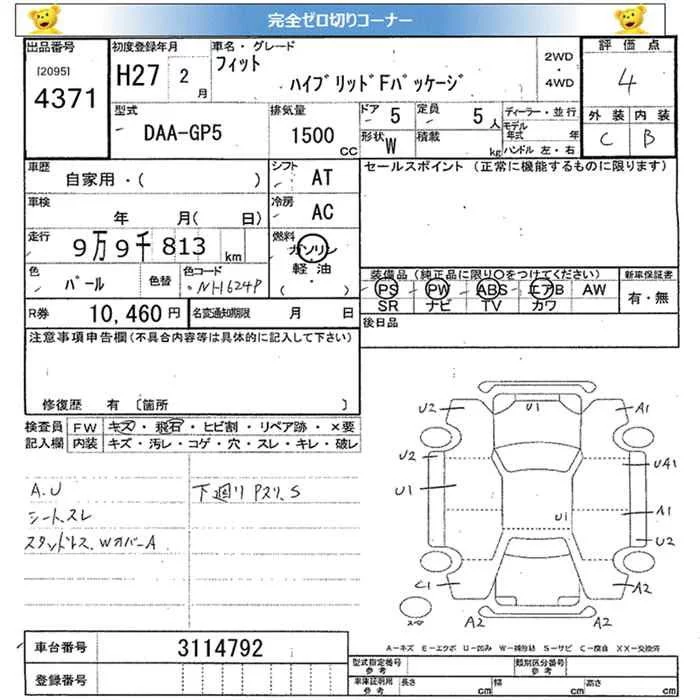 完全ゼロ切りコーナー
出品番号
[2095]
4371
初度登録年月
H27 2 月
車名・グレード
フィット
ハイブリッドFパッケージ
2WD
・
4WD
評価点
4
外装 内装
C B
型式
DAA-GP5
排気量
1500 CC
ドア 5
定員 5 人
形状 W
積載 kg
ディーラー・並行
モデル年式 年
ハンドル 左・右
車歴
自家用・( )
シフト AT
セールスポイント (正常に機能するものに限ります)
車検
年 月( 日)
冷房 AC
走行
9万9千813 km
燃料
ガソリン
軽油
( ・ )
色
パール
色替
色コード
NH624P
装備品 (純正品に限り○をつけてください)
PS PW ABS エアB AW
SR ナビ TV カワ
新車保証書
有・無
R券 10,460 円
名変通知期限 月 日
後日品
注意事項申告欄(不具合内容等は具体的に記入して下さい)
修復歴 有 〔箇所 〕
検査員記入欄
FW キズ・飛石・ヒビ割・リペア跡・×要
内装 キズ・汚レ・コゲ・穴・スレ・キレ・破レ
A.U
シートスレ
スタッドレス.WオバーA
下廻りPスリ.S
U2 U1 A1
U2 UA1
U1 U1 A1
U2
C1 A2
A2 A2
A-キズ E-エクボ U-凹み W-補修跡 S-サビ C-腐食 XX-交換済
車台番号 3114792
登録番号
型式指定番号 参考
類別区分番号 参考
車庫証明用 参考
長さ cm 幅 cm 高さ cm